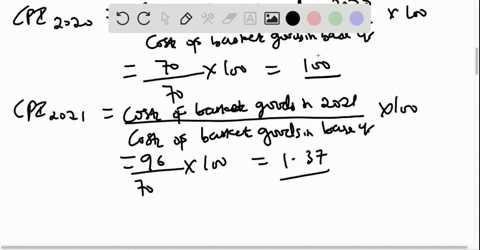 CPI 2020 = × 100
Cost of basket goods in base yr
= 70/70 × 100 = 100
CPI 2021 = Cost of basket goods in 2021 × 100
Cost of basket goods in base yr
= 96/70 × 100 = 1.37